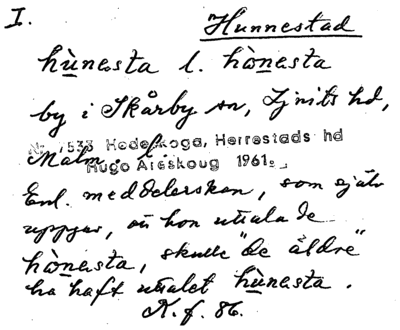 I.
Hunnestad
hùnasta l. hònasta
by i Skårby sn, Ljunits hd,
Nr 7533 Hedeskoga, Herrestads hd
Malm. l.
Hugo Areskoug 1961.
Enl. meddelerskan, som själv
uppger, att hon uttalade
hònasta, skulle "de äldre"
ha haft uttalet hùnasta.
K. f. 86.